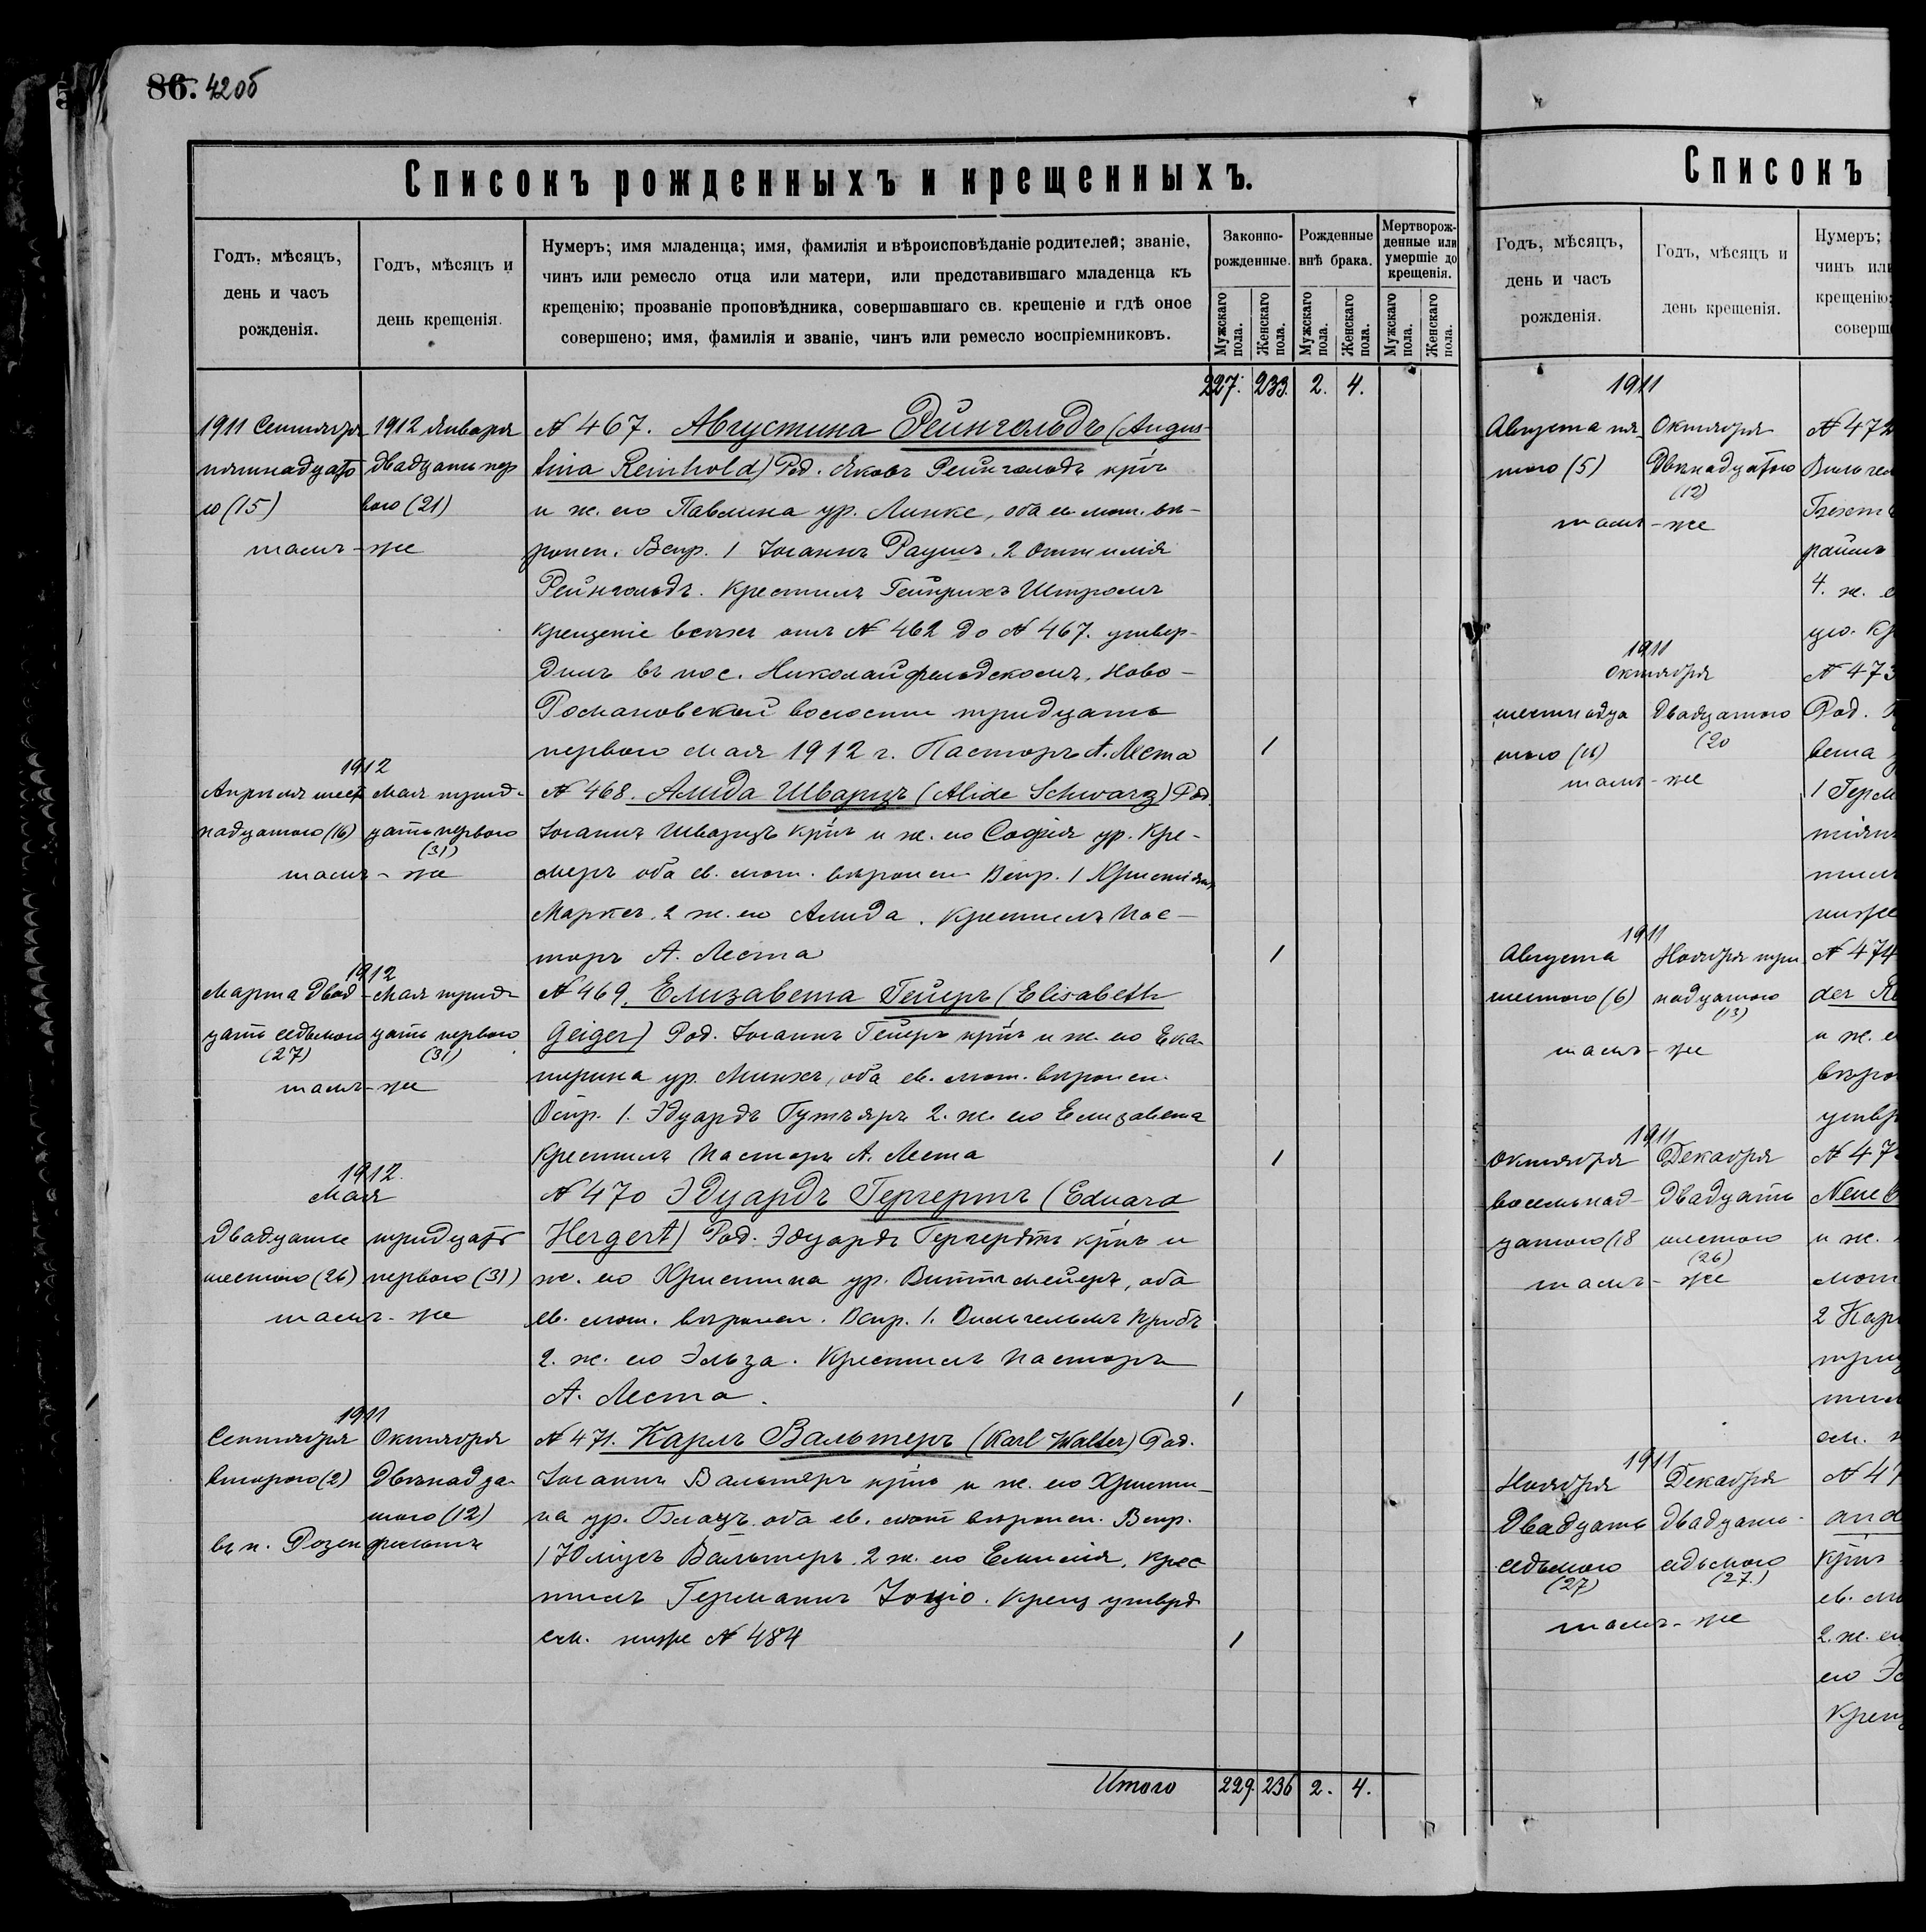 86. 42об
Списокъ рожденныхъ и крещенныхъ.
Годъ, мѣсяцъ,
день и часъ
рожденія.
Годъ, мѣсяцъ и
день крещенія.
Нумеръ; имя младенца; имя, фамилія и вѣроисповѣданіе родителей; званіе,
чинъ или ремесло отца или матери, или представившаго младенца къ
крещенію; прозваніе проповѣдника, совершавшаго св. крещеніе и гдѣ оное
совершено; имя, фамилія и званіе, чинъ или ремесло воспріемниковъ.
Законно-
рожденные.
Рожденные
внѣ брака.
Мертворож-
денные или
умершіе до
крещенія.
Мужскаго пола.
Женскаго пола.
Мужскаго пола.
Женскаго пола.
Мужскаго пола.
Женскаго пола.
227. 233. 2. 4.
1911 Сентября
пятнадцато
го (15)
1912 Января
двадцать пер
вого (21)
тамъ-же
№ 467. Августина Рейнгольдъ (Augus-
tina Reinhold) Род. Яковъ Рейнгольдъ крін
и ж. его Павлина ур. Линке, оба ев. лют. вѣ-
роисп. Вспр. 1 Іоганнъ Раушъ, 2 Оттилія
Рейнгольдъ. Крестилъ Гейнрихъ Штромъ
Крещеніе всѣхъ отъ № 462 до № 467. утвер-
дилъ въ пос. Николайфельдскомъ, Ново-
Романовской волости тридцать
перваго мая 1912 г. Пасторъ А. Леста
1
1912
Апрѣля шест
надцатого (16)
Мая тридъ-
цать первого
(31)
тамъ-же
№ 468. Алида Шварцъ (Alide Schwarz) Род.
Іоганнъ Шварцъ крін и ж. его Софія ур. Кре-
меръ оба ев. лют. вѣроисп. Вспр. 1 Христіанъ
Марксъ, 2 ж. его Алида. Крестилъ Пас-
торъ А. Леста
1
1912
Марта двад-
цать седьмого
(27)
Мая трид-
цать первого
(31)
тамъ-же
№ 469. Елизавета Гейгеръ (Elisabeth
Geiger) Род. Іоганнъ Гейгеръ крін и ж. его Ека-
терина ур. Минхъ, оба ев. лют. вѣроисп.
Вспр. 1. Эдуардъ Гутъяръ 2. ж. его Елизавета
Крестилъ Пасторъ А. Леста
1
1912.
Мая
двадцать
шестого (26)
тридцать
первого (31)
тамъ-же
№ 470 Эдуардъ Гергертъ (Eduard
Hergert) Род. Эдуардъ Гергердтъ крін и
ж. его Христина ур. Виттмейеръ, оба
ев. лют. вѣроисп. Вспр. 1. Вильгельмъ Крибъ
2. ж. его Эльза. Крестилъ Пасторъ
А. Леста.
1
1911
Сентября
второго (2)
Октября
Двѣнадца-
того (12)
въ п. Розенфельдъ
№ 471. Карлъ Вальтеръ (Karl Walter) Род.
Іоганнъ Вальтеръ крін и ж. его Христи-
на ур. Блацъ оба ев. лют вѣроисп. Вспр.
1 Юліусъ Вальтеръ, 2 ж. его Емилія. Крес
тилъ Германъ Іоціо. Крещ утврд
см. ниже № 484
1
Итого 229. 236 2. 4.
Списокъ
Годъ, мѣсяцъ,
день и часъ
рожденія.
Годъ, мѣсяцъ и
день крещенія.
Нумеръ;
чинъ или
крещенію;
соверше
1911
Августа пя-
того (5)
Октября
Двѣнадцатого
(12)
тамъ-же
№ 472
4. ж. е
1911
Октября
шестнадца
того (16)
двадцатого
(20
тамъ-же
№ 473
Род.
вета
1 Герм
ниже
1911
Августа
шестого (6)
Ноября три
надцатого
(13)
тамъ-же
№ 474
der Re
и ж. е
вѣро
утвр
1911
Октября
восемьнад-
цатого (18
Декабря
двадцать
шестого
(26)
тамъ-же
№ 47
Neue
и ж.
лют
2 Кар
см. н
1911
Ноября
Двадцать
седьмого
(27)
Декабря
двадцать-
седьмого
(27.)
тамъ-же
№ 47
and
крін
ев. лю
2. ж. ег
его Эд
Крещ